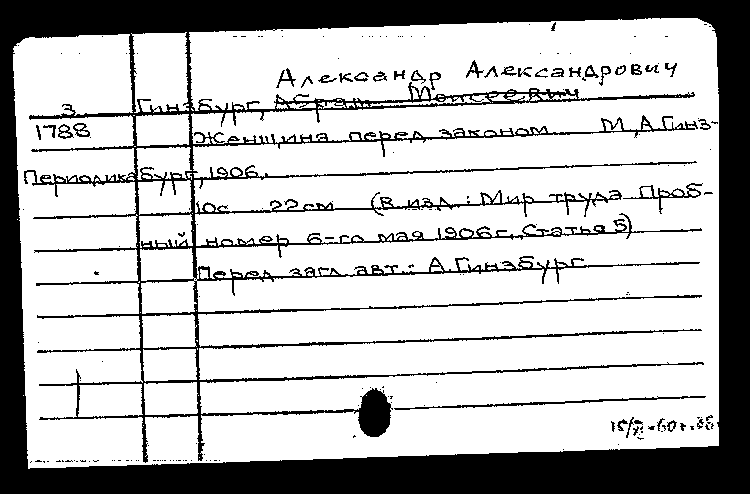 Александр Александрович
З Гинзбург, Абрам Моисеевич
1788 Женщина перед законом М, А. Гинз-
Периодика бург, 1906.
10с 22см (В изд.: Мир труда Проб-
ный номер 6-го мая 1906г., Статья 5)
Перед загл. авт.: А. Гинзбург